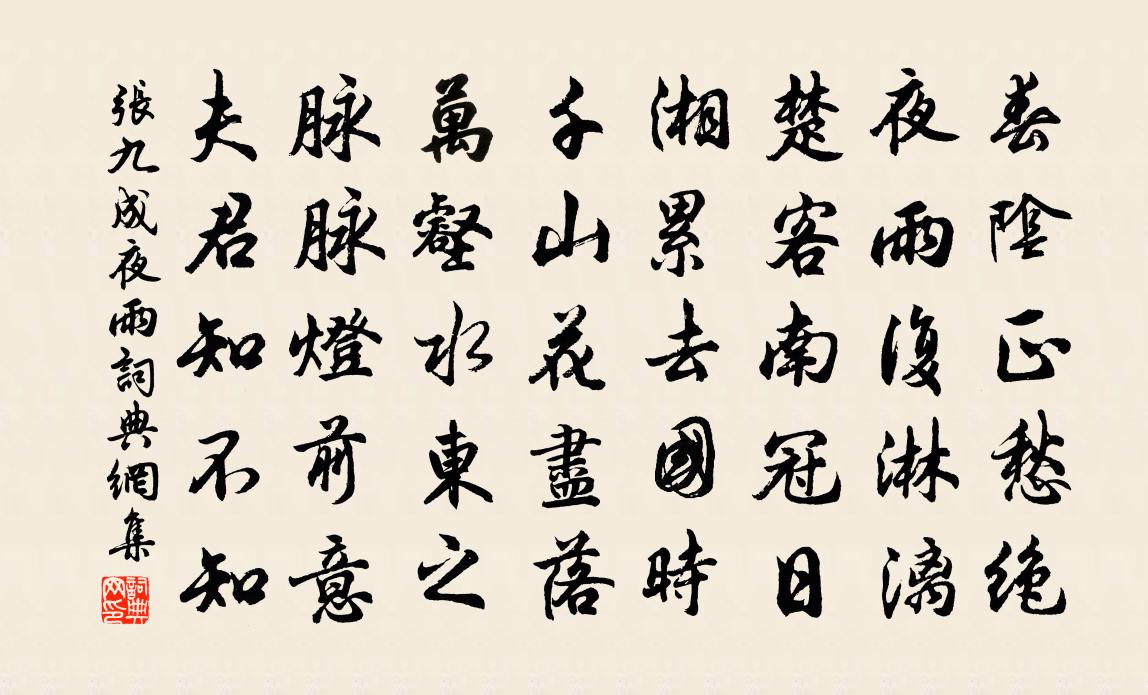 春陰正愁絶
夜雨復淋漓
楚客南冠日
湘累去國時
千山花盡落
萬壑水東之
脉脉燈前意
夫君知不知
張九成夜雨詞典網集
詞典
网印